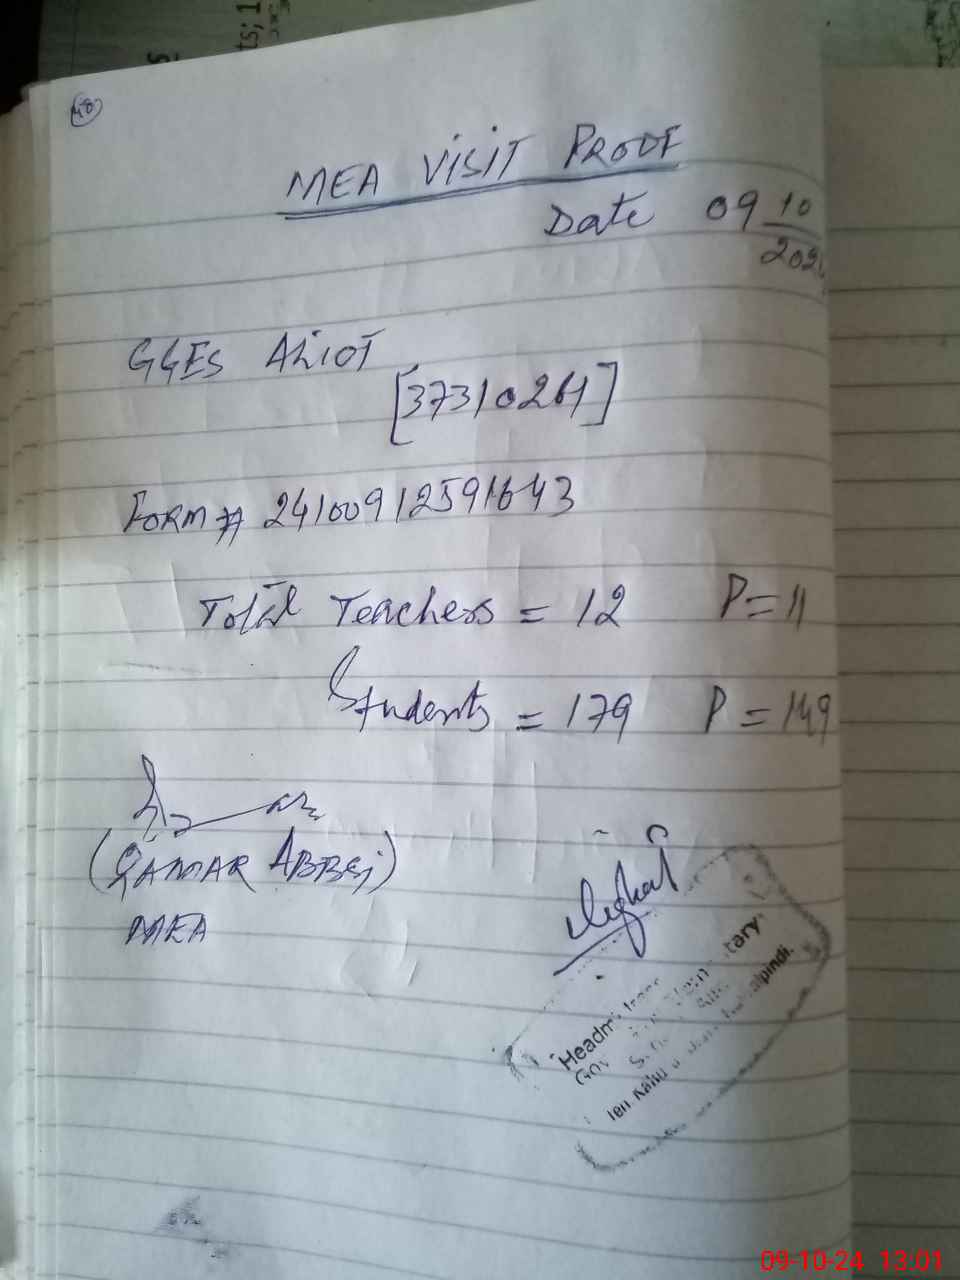 48
MEA VISIT PROOF
Date 09 10
2024
GGES ALIOT
[37310261]
FORM # 24100912591643
Total Teachers = 12 P = 11
Students = 179 P = 149
(QAMAR ABBASI)
MEA
Gov
tary
Teh Kahuta Distt Rawalpindi.
09-10-24 13:01